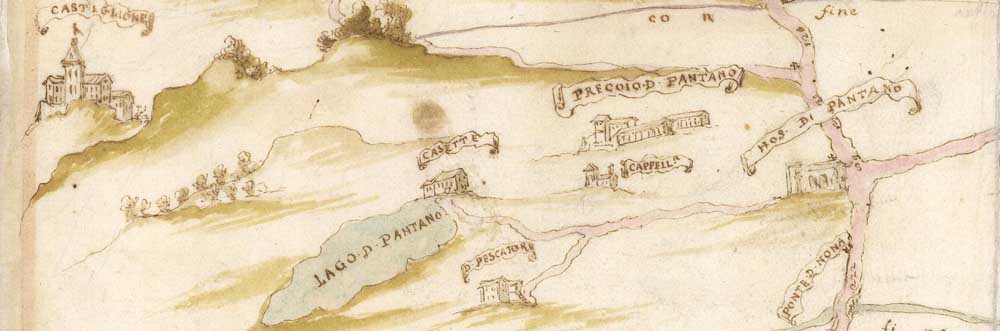 CASTIGLIONE
CON fine
PREGOIO.D.PANTANO
HOS. DI PANTANO
CASETTE
CAPPELLA
LAGO.D.PANTANO
D.PESCATORI
PONTE.D.NONA
fi